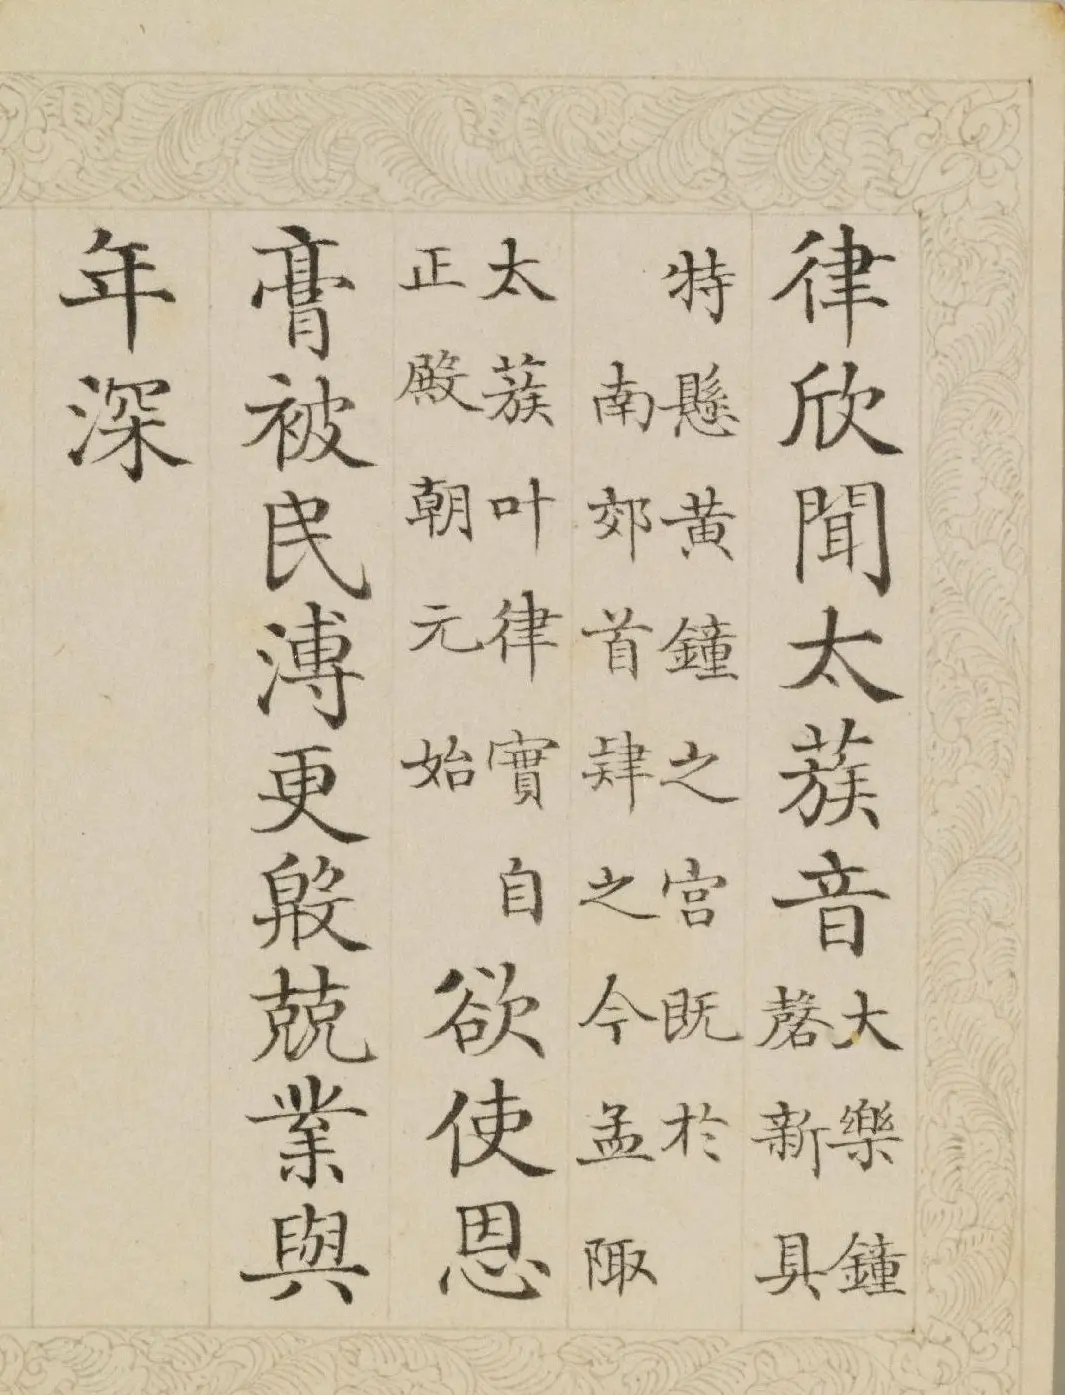 律欣聞太蔟音
大樂鐘
磬新具
特懸黄鐘之宫既於
南郊首肆之今孟陬
太蔟叶律實自
正殿朝元始
欲使恩
膏被民溥更殷兢業與
年深